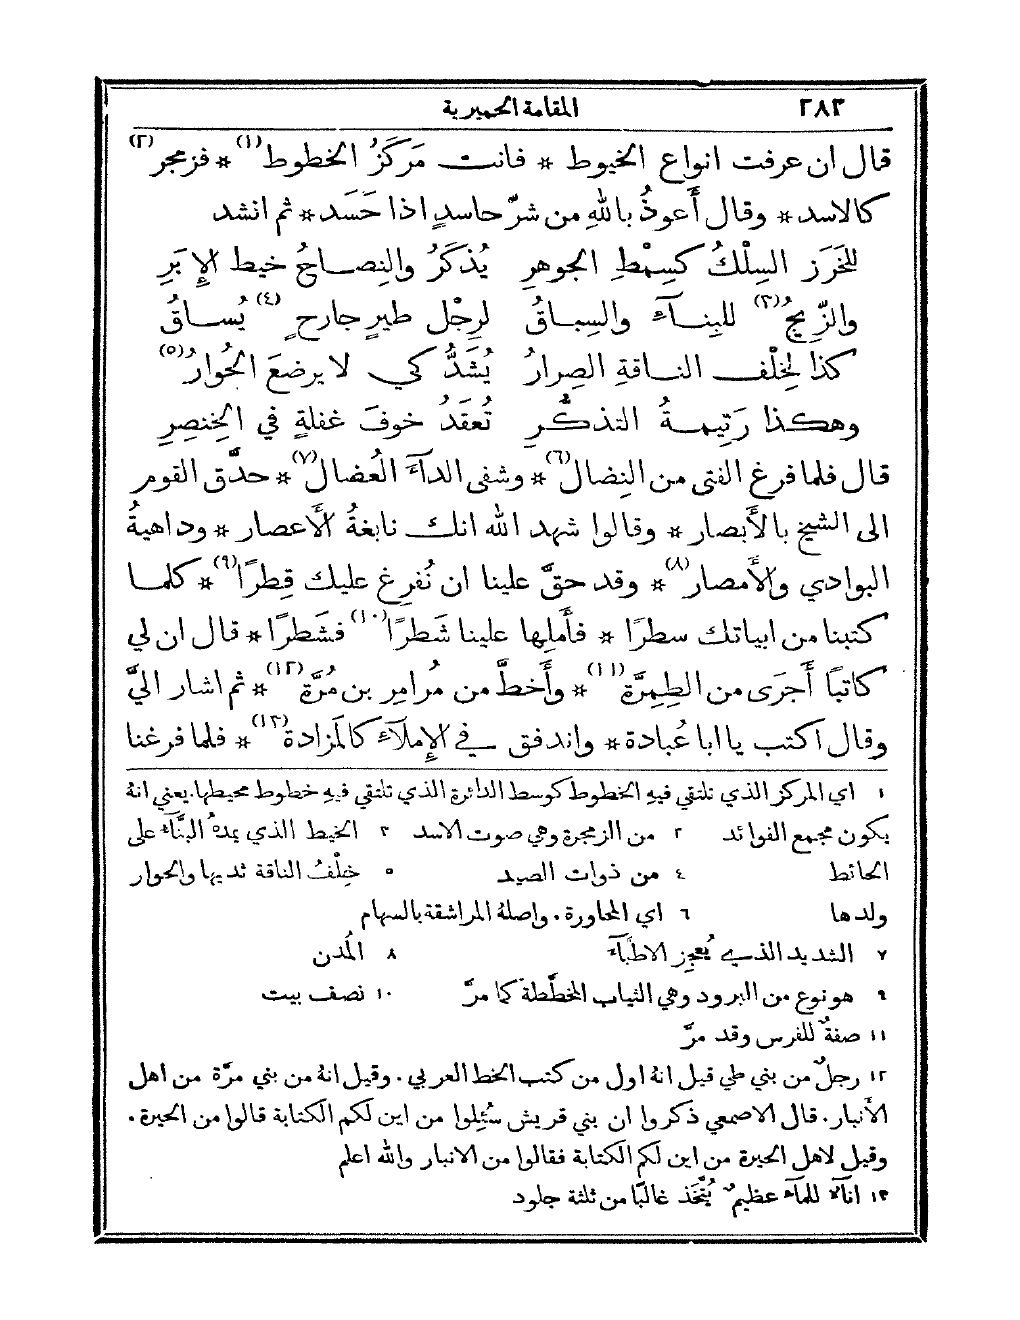 ٢٨٣ المقامة الحميرية
قال ان عرفت انواع الخيوط * فانت مَرْكَزُ الخطوط(١) * فزمجر(٢)
كالاسد * وقال أَعوذُ باللهِ من شرّ حاسدٍ اذا حَسَد * ثم انشد
للخَرَزِ السِلْكُ كسِمْطِ الجوهرِ يُذكَرُ والنِصاحُ خيط الإِبَرِ
والزِيجُ(٣) للبِنآءِ والسِباقُ لرِجْل طيرٍ جارحٍ(٤) يُساقُ
كذا لخِلْف الناقةِ الصِرارُ يُشَدُّ كي لا يرضعَ الحُوارُ(٥)
وهكذا رَتِيمةُ التذكُّرِ تُعقَدُ خوفَ غفلةٍ في الخِنصِرِ
قال فلما فرغ الفتى من النِضال(٦) * وشفى الدآءَ العُضال(٧) * حدَّق القوم
الى الشيخ بالأَبصار * وقالوا شهد الله انك نابغةُ الأَعصار * وداهيةُ
البوادي والأَمصار(٨) * وقد حقَّ علينا ان نُفرِغ عليك قِطرًا(٩) * كلما
كتبنا من ابياتك سطرًا * فأَملِها علينا شَطرًا(١٠) فشَطرًا * قال ان لي
كاتبًا أَجرَى من الطِمِرَّة(١١) * وأَخطَّ من مُرامِر بن مُرَّة(١٢) * ثم اشار اليَّ
وقال اكتب يا ابا عُبادة * واندفق في الإِملآءِ كالمَزادة(١٣) * فلما فرغنا
١ اي المركز الذي تلتقي فيهِ الخطوط كوسط الدائرة الذي تلتقي فيهِ خطوط محيطها. يعني انهُ
يكون مجمع الفوائد ٢ من الزمجرة وهي صوت الاسد ٣ الخيط الذي يمدهُ البنَّآءُ على
الحائط ٤ من ذوات الصيد ٥ خِلْفُ الناقة ثديها والحوار
ولدها ٦ اي المحاورة. واصلهُ المراشقة بالسهام
٧ الشديد الذي يُعجِز الاطبَّآءَ ٨ المُدن
٩ هو نوع من البرود وهي الثياب المخطَّطة كما مرَّ ١٠ نصف بيت
١١ صفةٌ للفرس وقد مرَّ
١٢ رجلٌ من بني طي قيل انهُ اول من كتب الخط العربي. وقيل انهُ من بني مرَّة من اهل
الأَنبار. قال الاصمعي ذكروا ان بني قريش سُئِلوا من اين لكم الكتابة قالوا من الحيرة.
وقيل لاهل الحيرة من اين لكم الكتابة فقالوا من الانبار والله اعلم
١٣ انآءٌ للمآءِ عظيمٌ يُتَّخَذ غالبًا من ثلثة جلود